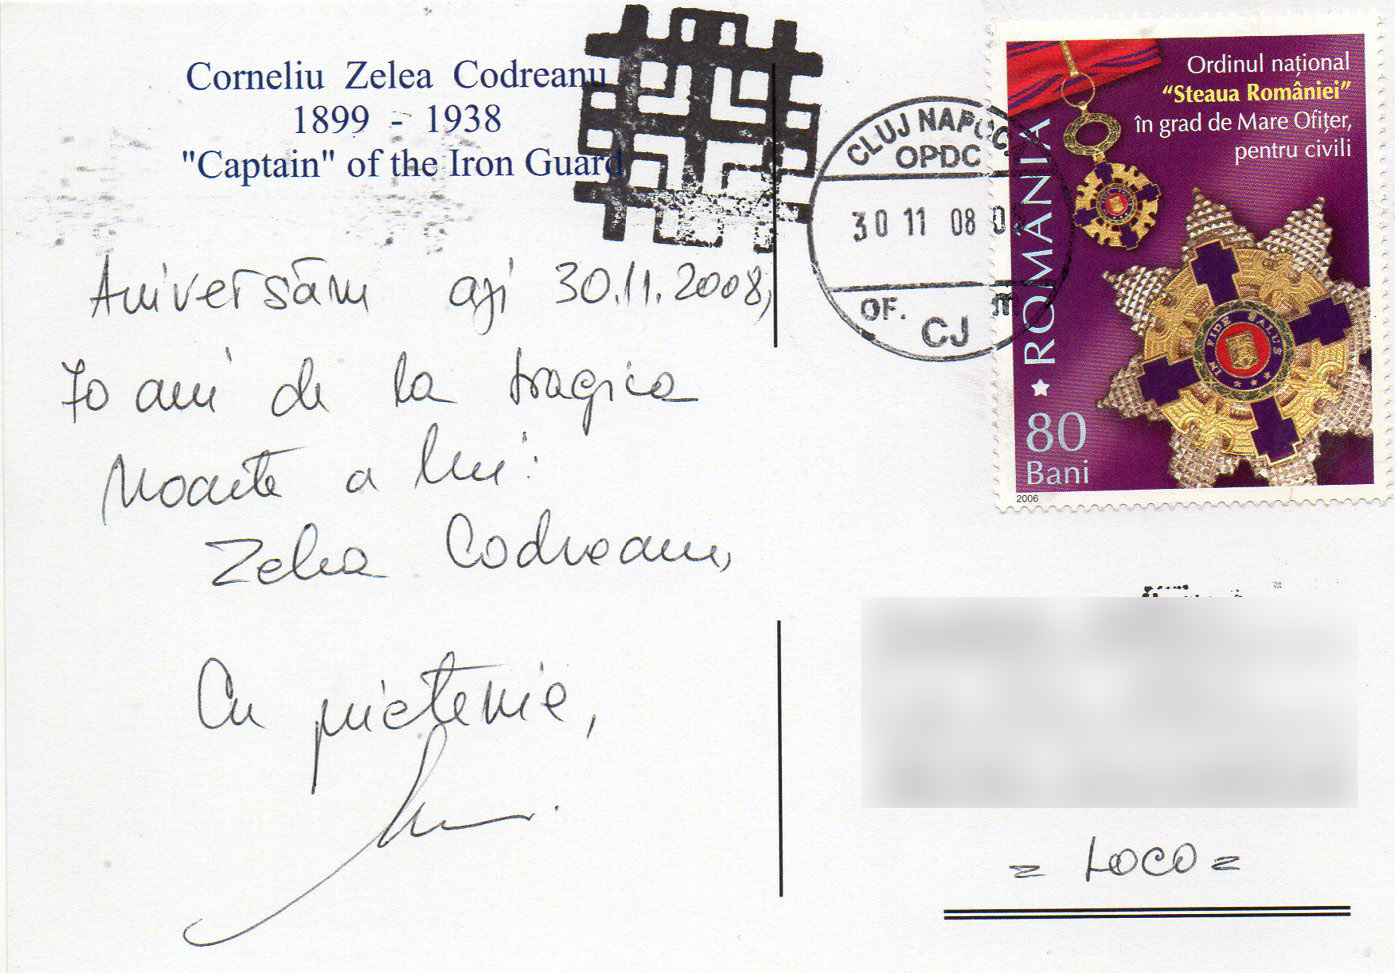 Corneliu Zelea Codreanu
1899 - 1938
"Captain" of the Iron Guard
Aniversăm azi 30.11.2008,
70 ani de la tragica
Moarte a lui:
Zelea Codreanu,
Cu prietenie,
CLUJ NAPOCA
OPDC
30 11 08
OF.
CJ
Ordinul național
“Steaua României”
în grad de Mare Ofițer,
pentru civili
ROMÂNIA
80
Bani
2006
IN FIDE SALUS
= LOCO =